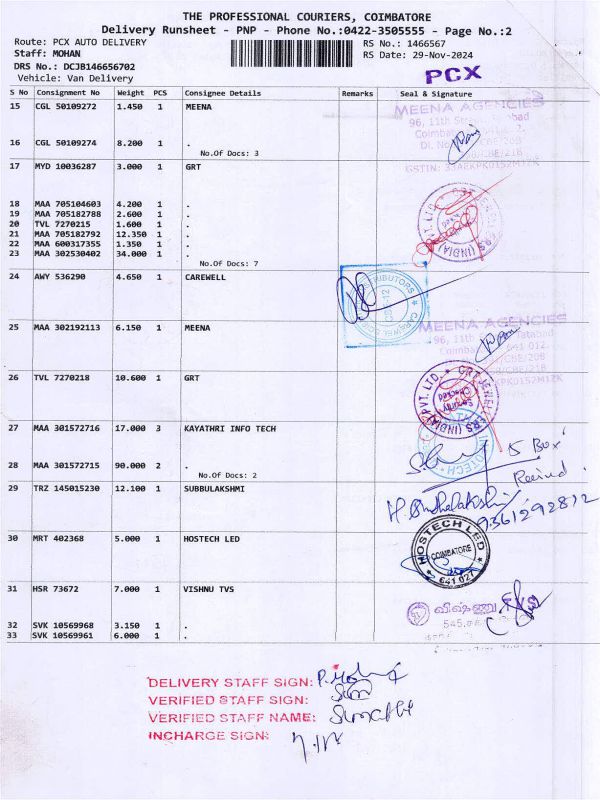 THE PROFESSIONAL COURIERS, COIMBATORE
Delivery Runsheet - PNP - Phone No.:0422-3505555 - Page No.:2
Route: PCX AUTO DELIVERY RS No.: 1466567
Staff: MOHAN RS Date: 29-Nov-2024
DRS No.: DCJB146656702
Vehicle: Van Delivery PCX
S No Consignment No Weight PCS Consignee Details Remarks Seal & Signature
15 CGL 50109272 1.450 1 MEENA
MEENA AGENCIES
96, 11th Street
16 CGL 50109274 8.200 1 .
No.Of Docs: 3
17 MYD 10036287 3.000 1 GRT
18 MAA 705104603 4.200 1 .
19 MAA 705182788 2.600 1 .
20 TVL 7270215 1.600 1 .
21 MAA 705182792 12.350 1 .
22 MAA 600317355 1.350 1 .
23 MAA 302530402 34.000 1 .
No.Of Docs: 7
24 AWY 536290 4.650 1 CAREWELL
25 MAA 302192113 6.150 1 MEENA
MEENA AGENCIES
26 TVL 7270218 10.600 1 GRT
GRT JEWELLERS (INDIA) PVT. LTD.
27 MAA 301572716 17.000 3 KAYATHRI INFO TECH
5 Box
28 MAA 301572715 90.000 2 .
Received
No.Of Docs: 2
29 TRZ 145015230 12.100 1 SUBBULAKSHMI
9361292812
30 MRT 402368 5.000 1 HOSTECH LED
HOSTECH LED
COIMBATORE
641 027
31 HSR 73672 7.000 1 VISHNU TVS
விஷ்ணு
32 SVK 10569968 3.150 1 .
33 SVK 10569961 6.000 1 .
DELIVERY STAFF SIGN:
VERIFIED STAFF SIGN:
VERIFIED STAFF NAME:
INCHARGE SIGN: